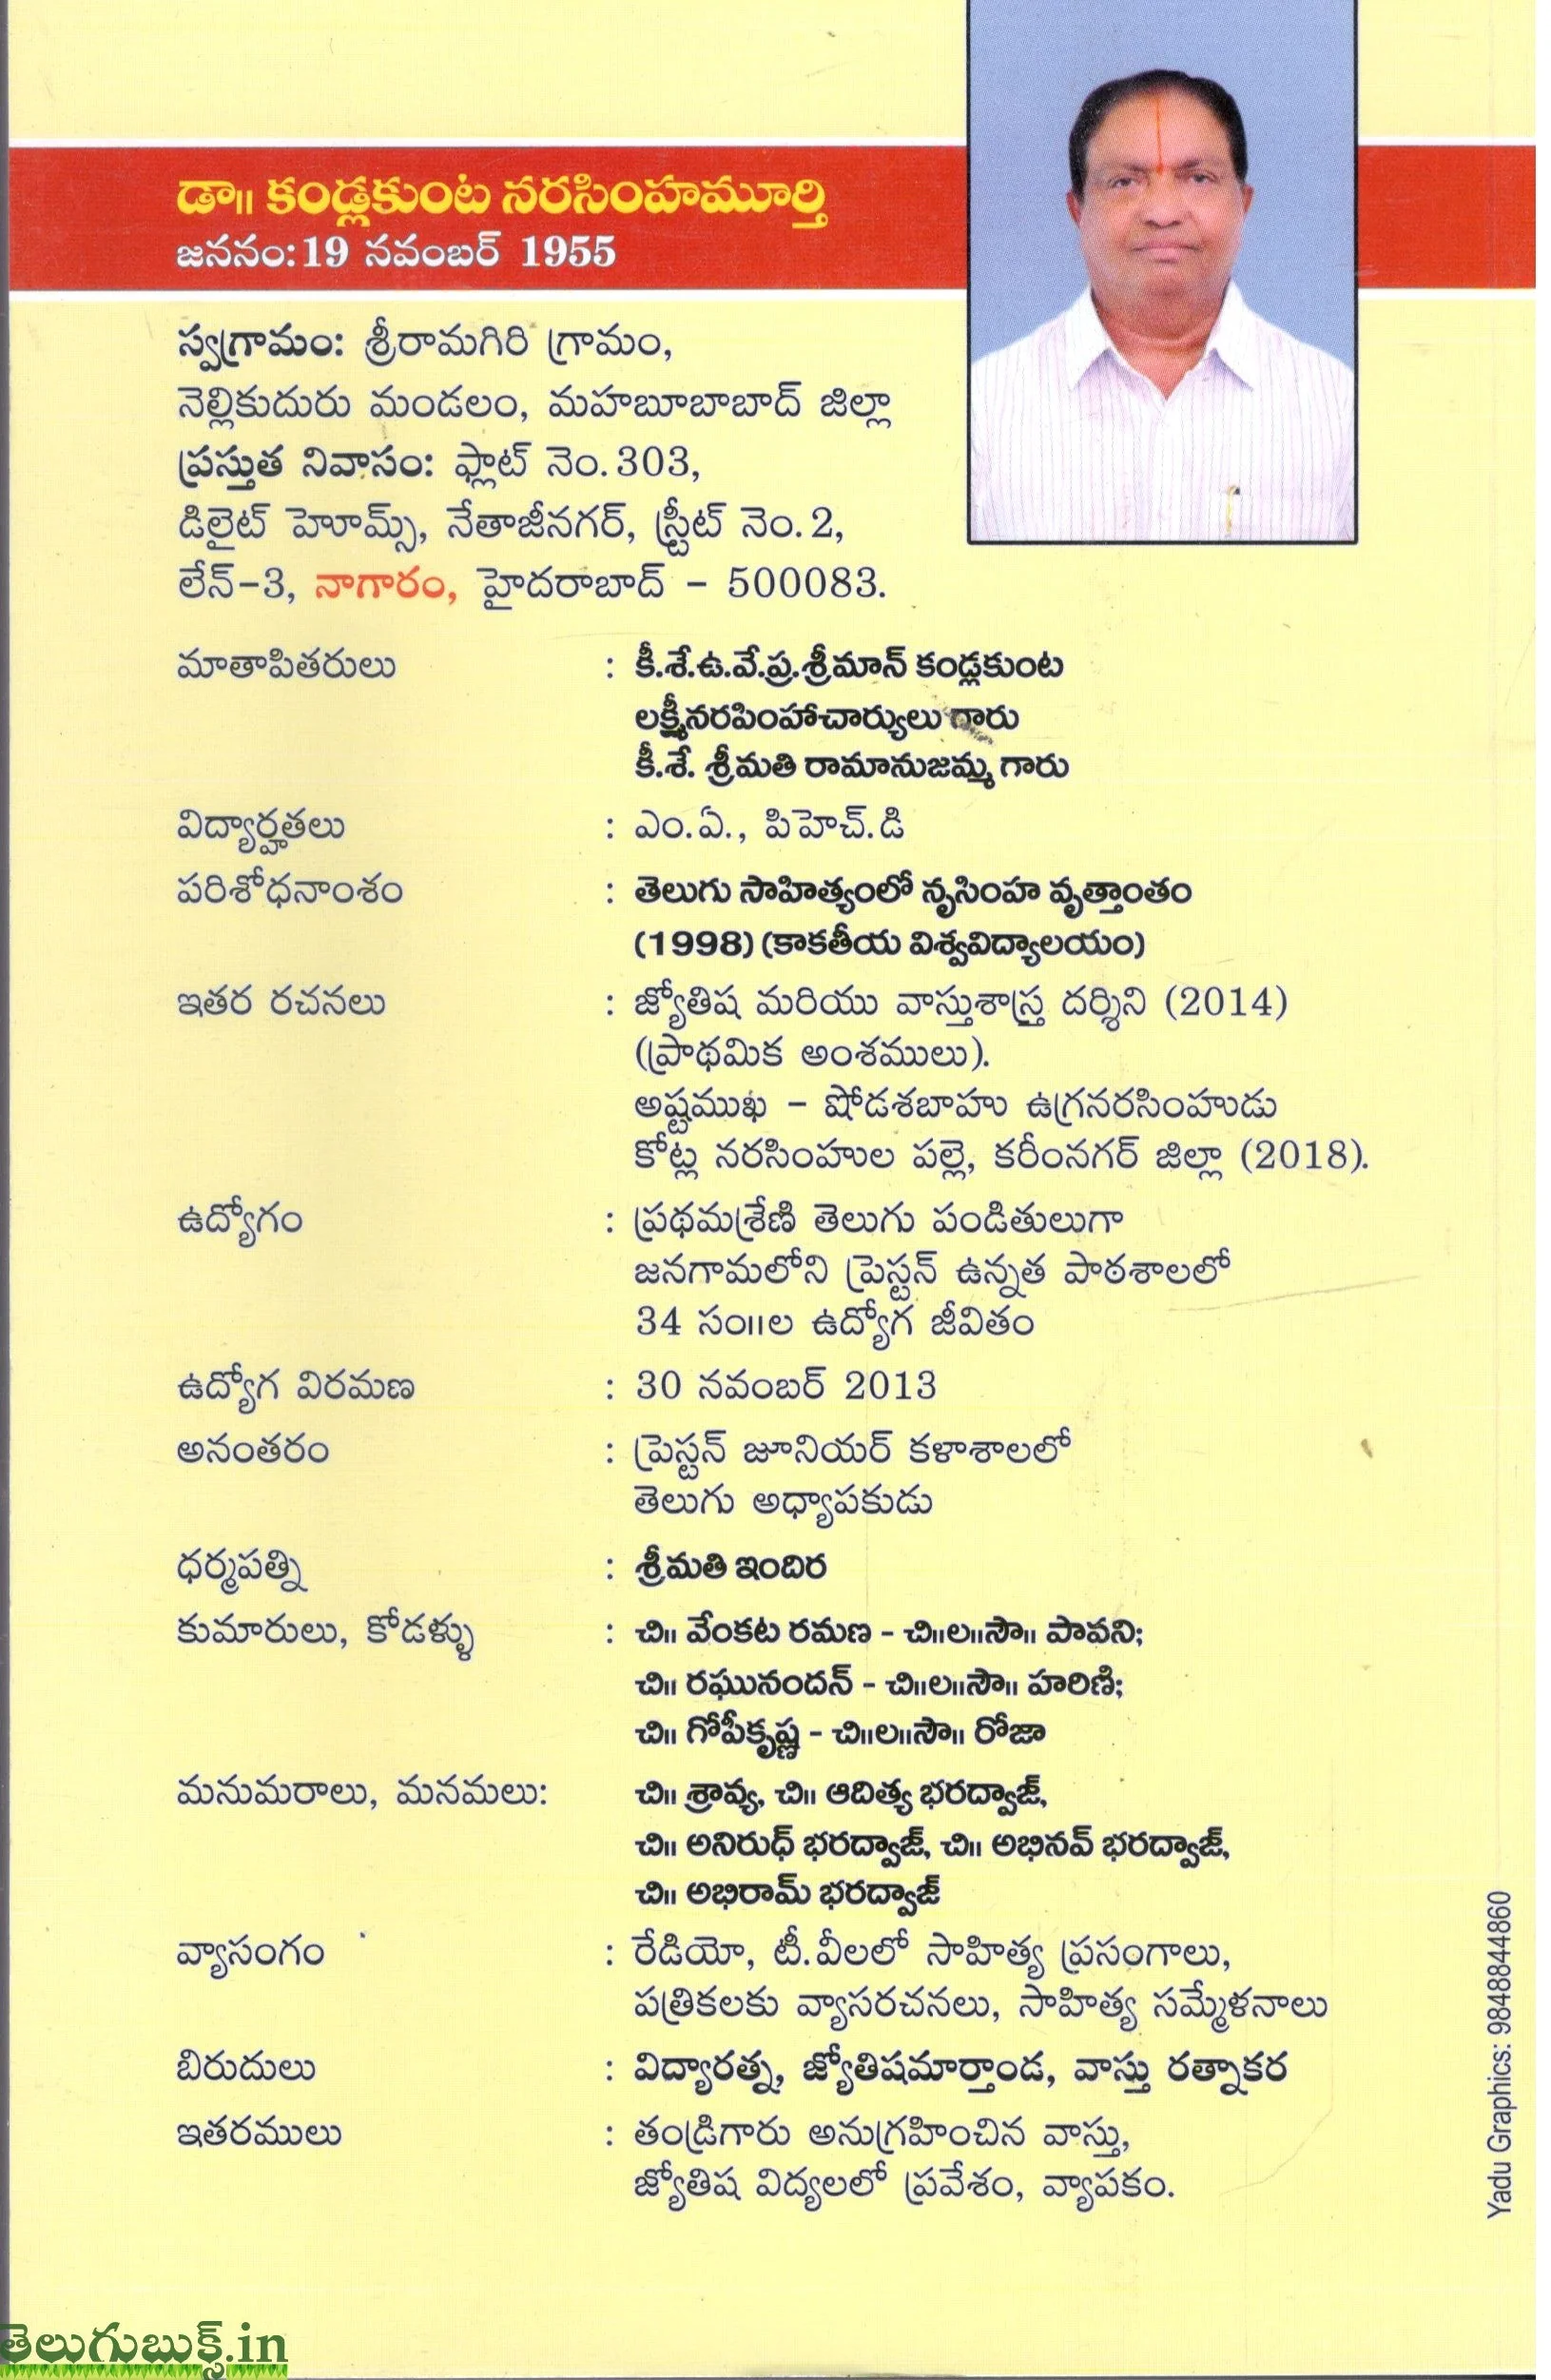 డా॥ కండ్లకుంట నరసింహమూర్తి
జననం:19 నవంబర్ 1955
స్వగ్రామం: శ్రీరామగిరి గ్రామం,
నెల్లికుదురు మండలం, మహబూబాబాద్ జిల్లా
ప్రస్తుత నివాసం: ఫ్లాట్ నెం.303,
డిలైట్ హెూమ్స్, నేతాజీనగర్, స్ట్రీట్ నెం.2,
లేన్-3, నాగారం, హైదరాబాద్ - 500083.
మాతాపితరులు : కీ.శే.ఉ.వే.ప్ర.శ్రీమాన్ కండ్లకుంట
లక్ష్మీనరసింహాచార్యులు గారు
కీ.శే. శ్రీమతి రామానుజమ్మ గారు
విద్యార్హతలు : ఎం.ఏ., పిహెచ్.డి
పరిశోధనాంశం : తెలుగు సాహిత్యంలో నృసింహ వృత్తాంతం
(1998) (కాకతీయ విశ్వవిద్యాలయం)
ఇతర రచనలు : జ్యోతిష మరియు వాస్తుశాస్త్ర దర్శిని (2014)
(ప్రాథమిక అంశములు).
అష్టముఖ - షోడశబాహు ఉగ్రనరసింహుడు
కోట్ల నరసింహుల పల్లె, కరీంనగర్ జిల్లా (2018).
ఉద్యోగం : ప్రథమశ్రేణి తెలుగు పండితులుగా
జనగామలోని ప్రెస్టన్ ఉన్నత పాఠశాలలో
34 సం॥ల ఉద్యోగ జీవితం
ఉద్యోగ విరమణ : 30 నవంబర్ 2013
అనంతరం : ప్రెస్టన్ జూనియర్ కళాశాలలో
తెలుగు అధ్యాపకుడు
ధర్మపత్ని : శ్రీమతి ఇందిర
కుమారులు, కోడళ్ళు : చి॥ వేంకట రమణ - చి॥ల॥సౌ॥ పావని;
చి॥ రఘునందన్ - చి॥ల॥సౌ॥ హరిణి;
చి॥ గోపీకృష్ణ - చి॥ల॥సౌ॥ రోజా
మనుమరాలు, మనమలు: చి॥ శ్రావ్య, చి॥ ఆదిత్య భరద్వాజ్,
చి॥ అనిరుధ్ భరద్వాజ్, చి॥ అభినవ్ భరద్వాజ్,
చి॥ అభిరామ్ భరద్వాజ్
వ్యాసంగం : రేడియో, టీ.వీలలో సాహిత్య ప్రసంగాలు,
పత్రికలకు వ్యాసరచనలు, సాహిత్య సమ్మేళనాలు
బిరుదులు : విద్యారత్న, జ్యోతిషమార్తాండ, వాస్తు రత్నాకర
ఇతరములు : తండ్రిగారు అనుగ్రహించిన వాస్తు,
జ్యోతిష విద్యలలో ప్రవేశం, వ్యాపకం.
Yadu Graphics: 9848844860
తెలుగుబుక్స్.in